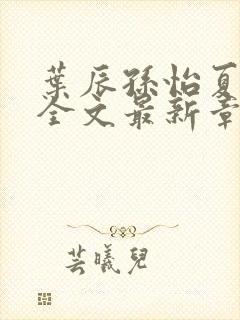 葉辰孫怡夏
全文最新章
芸曦兒